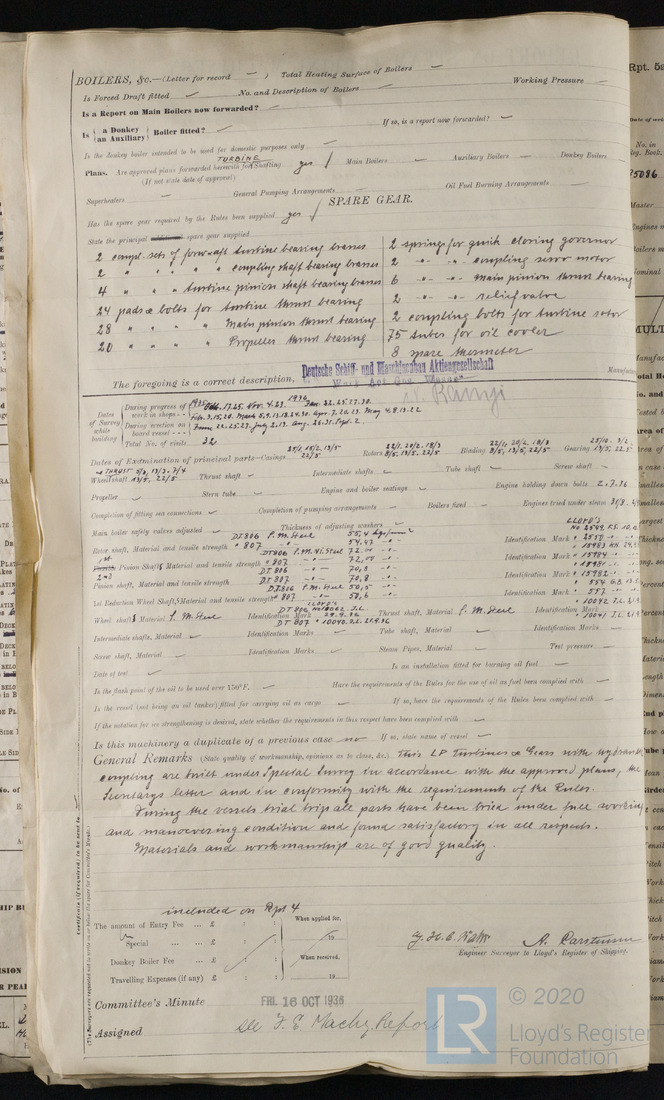 BOILERS, &c.—(Letter for record — ) Total Heating Surface of Boilers —
Is Forced Draft fitted No. and Description of Boilers Working Pressure
Is a Report on Main Boilers now forwarded?
Is { a Donkey / an Auxiliary } Boiler fitted? If so, is a report now forwarded?
Is the donkey boiler intended to be used for domestic purposes only
TURBINE
Plans. Are approved plans forwarded herewith for Shafting yes Main Boilers Auxiliary Boilers Donkey Boilers
(If not state date of approval)
Superheaters General Pumping Arrangements Oil Fuel Burning Arrangements
SPARE GEAR.
Has the spare gear required by the Rules been supplied yes
State the principal additional spare gear supplied
2 compl. sets of forw. & aft turbine bearing brasses
2 " " " " coupling shaft bearing brasses
4 " " turbine pinion shaft bearing brasses
24 pads & bolts for turbine thrust bearing
28 " " " " Main pinion thrust bearing
20 " " " " Propeller thrust bearing
2 springs for quick closing governor
2 " " coupling servo motor
6 " " Main pinion thrust bearing
2 " " relief valve
2 coupling bolts for turbine rotor
75 tubes for oil cooler
8 spare thermometer
The foregoing is a correct description, Deutsche Schiff- und Maschinenbau Aktiengesellschaft Manufacturer
Dates of Survey while building
During progress of work in shops - - 1935 Oct. 17.25. Nov. 4.23. 1936 Jan. 22.25.27.30.
Feb. 3.15.20. March 5.9.13.18.24.30. Apr. 7.20.23. May 4.8.13.22
During erection on board vessel - - - June 22.25.27. July 2.13. Aug. 26.31. Sept. 2.
Total No. of visits 32
Dates of Examination of principal parts—Casings 25/1, 15/2, 13/5 22/5 Rotors 22/1, 20/2, 18/3 8/5, 13/5, 22/5 Blading 22/1, 20/2, 18/3 8/5, 13/5, 22/5 Gearing 25/10, 3/2 13/5, 22/5
Wheel shaft & THRUST 5/3, 13/3, 7/4 13/5, 22/5 Thrust shaft Intermediate shafts Tube shaft Screw shaft
Propeller Stern tube Engine and boiler seatings Engine holding down bolts 2.7.36
Completion of fitting sea connections Completion of pumping arrangements Boilers fixed Engines tried under steam 31/8
Main boiler safety valves adjusted Thickness of adjusting washers
Rotor shaft, Material and tensile strength DT 806 S.M. Steel 55,4 kgs/mm² Identification Mark LLOYD'S No 2549
" 807 54,47 " 2550
1st Pinion Shafts, Material and tensile strength DT 806 S.M. Ni. Steel 72,0 Identification Mark " 15983
" 807 72,0 " 15984
2nd Pinion shaft, Material and tensile strength DT 806 70,8 Identification Mark " 15981
DT 807 70,8 " 15982
1st Reduction Wheel Shafts, Material and tensile strength DT 806 S.M. Steel 50,5 Identification Mark " 554
" 807 50,6 " 557
Wheel shaft, Material S. M. Steel Identification Mark LLOYD'S DT 806 No 10062 J.L. 29.9.36 Thrust shaft, Material S. M. Steel Identification Mark " 10042 J.L.
DT 807 " 10040 J.L. 21.9.36 " 10041 J.L.
Intermediate shafts, Material Identification Marks Tube shaft, Material Identification Marks
Screw shaft, Material Identification Marks Steam Pipes, Material Test pressure
Date of test Is an installation fitted for burning oil fuel
Is the flash point of the oil to be used over 150°F. Have the requirements of the Rules for the use of oil as fuel been complied with
Is the vessel (not being an oil tanker) fitted for carrying oil as cargo If so, have the requirements of the Rules been complied with
If the notation for ice strengthening is desired, state whether the requirements in this respect have been complied with
Is this machinery a duplicate of a previous case no If so, state name of vessel
General Remarks (State quality of workmanship, opinions as to class, &c.) This LP turbines & Gears with hydraulic
coupling are built under Special Survey in accordance with the approved plans, the
Secretarys letter and in conformity with the requirements of the Rules.
During the vessels trial trip all parts have been tried under full working
and manoeuvering condition and found satisfactory in all respects.
Materials and workmanship are of good quality.
included on Rpt 4
The amount of Entry Fee ... £ : : When applied for,
Special ... £ : : 19
Donkey Boiler Fee ... £ : : When received,
Travelling Expenses (if any) £ : : 19
A. Carstensen
Engineer Surveyor to Lloyd's Register of Shipping.
Committee's Minute FRI. 16 OCT 1936
Assigned See F. E. Machy. Report
© 2020
LR Lloyd's Register
Foundation